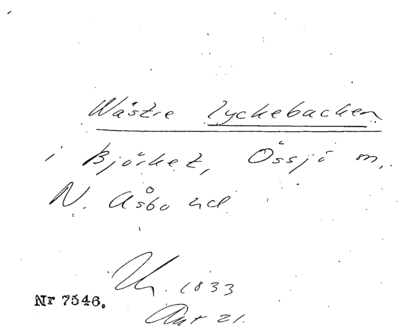 Wästre Lyckebacken
i Björket, Össjö m,
N. Åsbo hd
Uh. 1833
Akt 21.
Nr 7546.